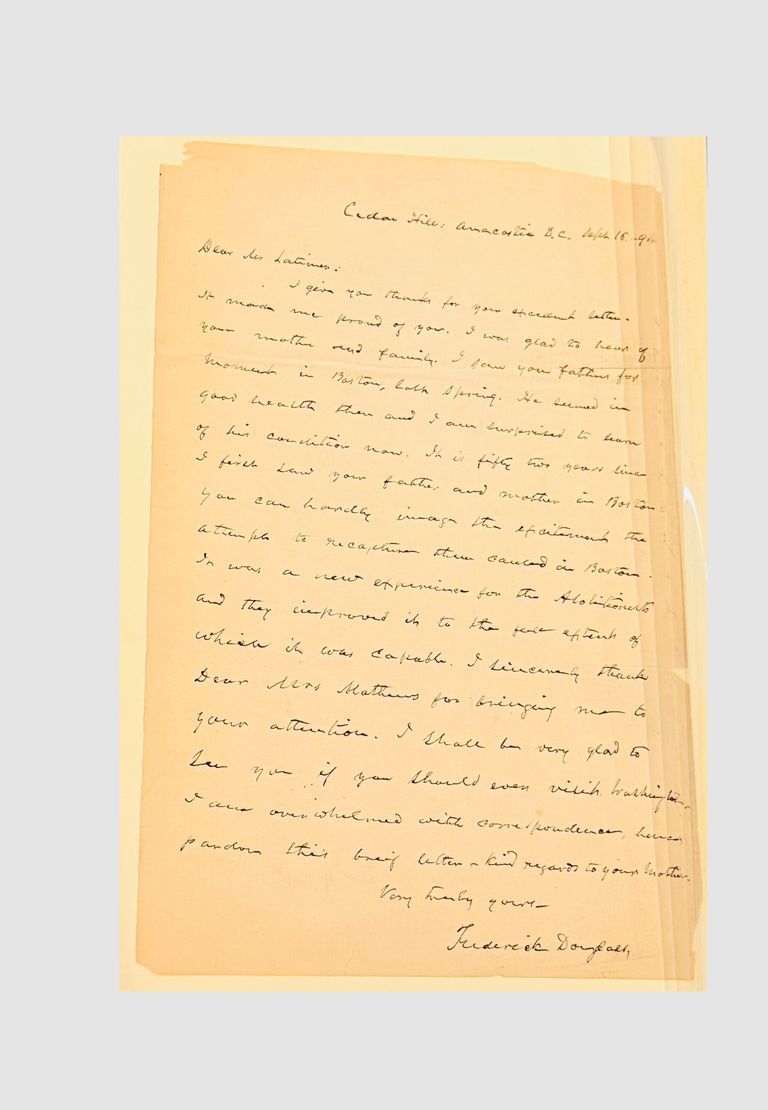 Cedar Hill: Anacostia D.C. Sept 15. 94
Dear Mr Latimer:
I give you thanks for your excellent letter.
It made me proud of you. I was glad to hear of
your mother and family. I saw your father for
moment in Boston, last Spring. He seemed in
good health then and I am surprised to learn
of his condition now. It is fifty two years since
I first saw your father and mother in Boston.
You can hardly imagin the excitement the
attempts to recapture them caused in Boston.
It was a new experience for the Abolitionists
and they improved it to the full extent of
which it was capable. I sincerely thank
Dear Mrs Mathews for bringing me to
your attention. I shall be very glad to
see you if you should even visit Washington.
I am overwhelmed with correspondence, hence
pardon this brief letter - Kind regards to your Mother.
Very truly yours -
Frederick Douglass,